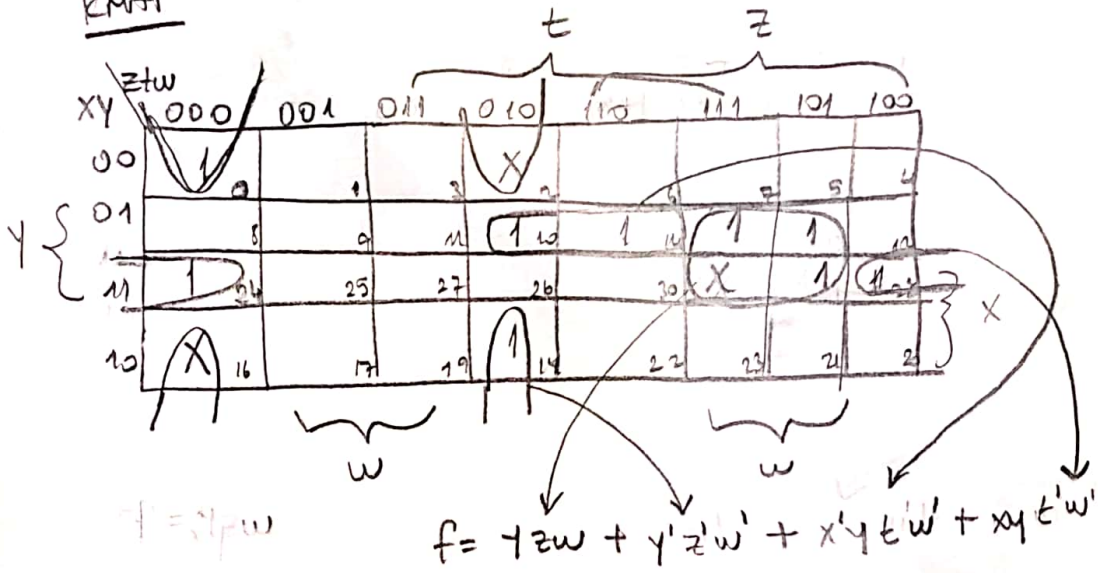 KMAP
t z
ztw
XY 000 001 011 010 110 111 101 100
00 1 0 1 3 X 2 6 7 5 4
Y 01 8 9 11 1 10 1 14 1 1 12
11 1 24 25 27 26 30 X 1 1 X
10 X 16 17 19 1 18 22 23 21 20
w w
f = yzw + y'z'w' + x'y t w' + xy t'w'